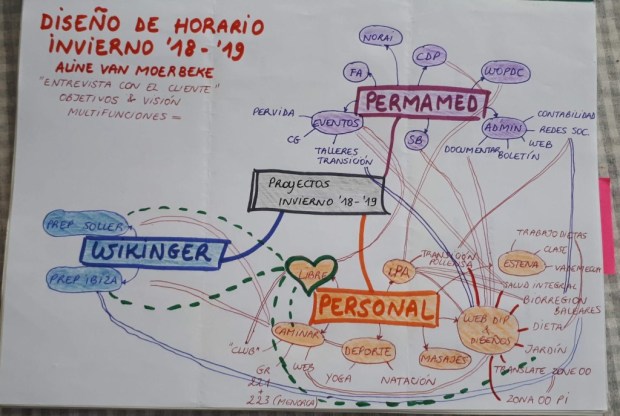 DISEÑO DE HORARIO
INVIERNO '18-'19
ALINE VAN MOERBEKE
"ENTREVISTA CON EL CLIENTE"
OBJETIVOS & VISIÓN
MULTIFUNCIONES =
NORAI
CDP
WOPDC
FA
PERMAMED
PERVIDA
EVENTOS
CG
TALLERES
TRANSICIÓN
SB
ADMIN
CONTABILIDAD
REDES SOC.
WEB
BOLETÍN
DOCUMENTAR
PROYECTOS
INVIERNO '18-'19
PREP SOLLER
WIKINGER
PREP IBIZA
LIBRE
PERSONAL
CAMINAR
"CLUB"
GR
221
+
223 (MENORCA)
WEB
DEPORTE
YOGA
NATACIÓN
MASAJES
TRANSICIÓN
ESTEVIA
TRABAJO DIETAS
CLASE
SALUD INTEGRAL
BIORREGION
BALEARES
WEB DIP
&
DISEÑOS
DIETA
JARDÍN
TRANSLATE ZONE 00
ZONA 00 PI